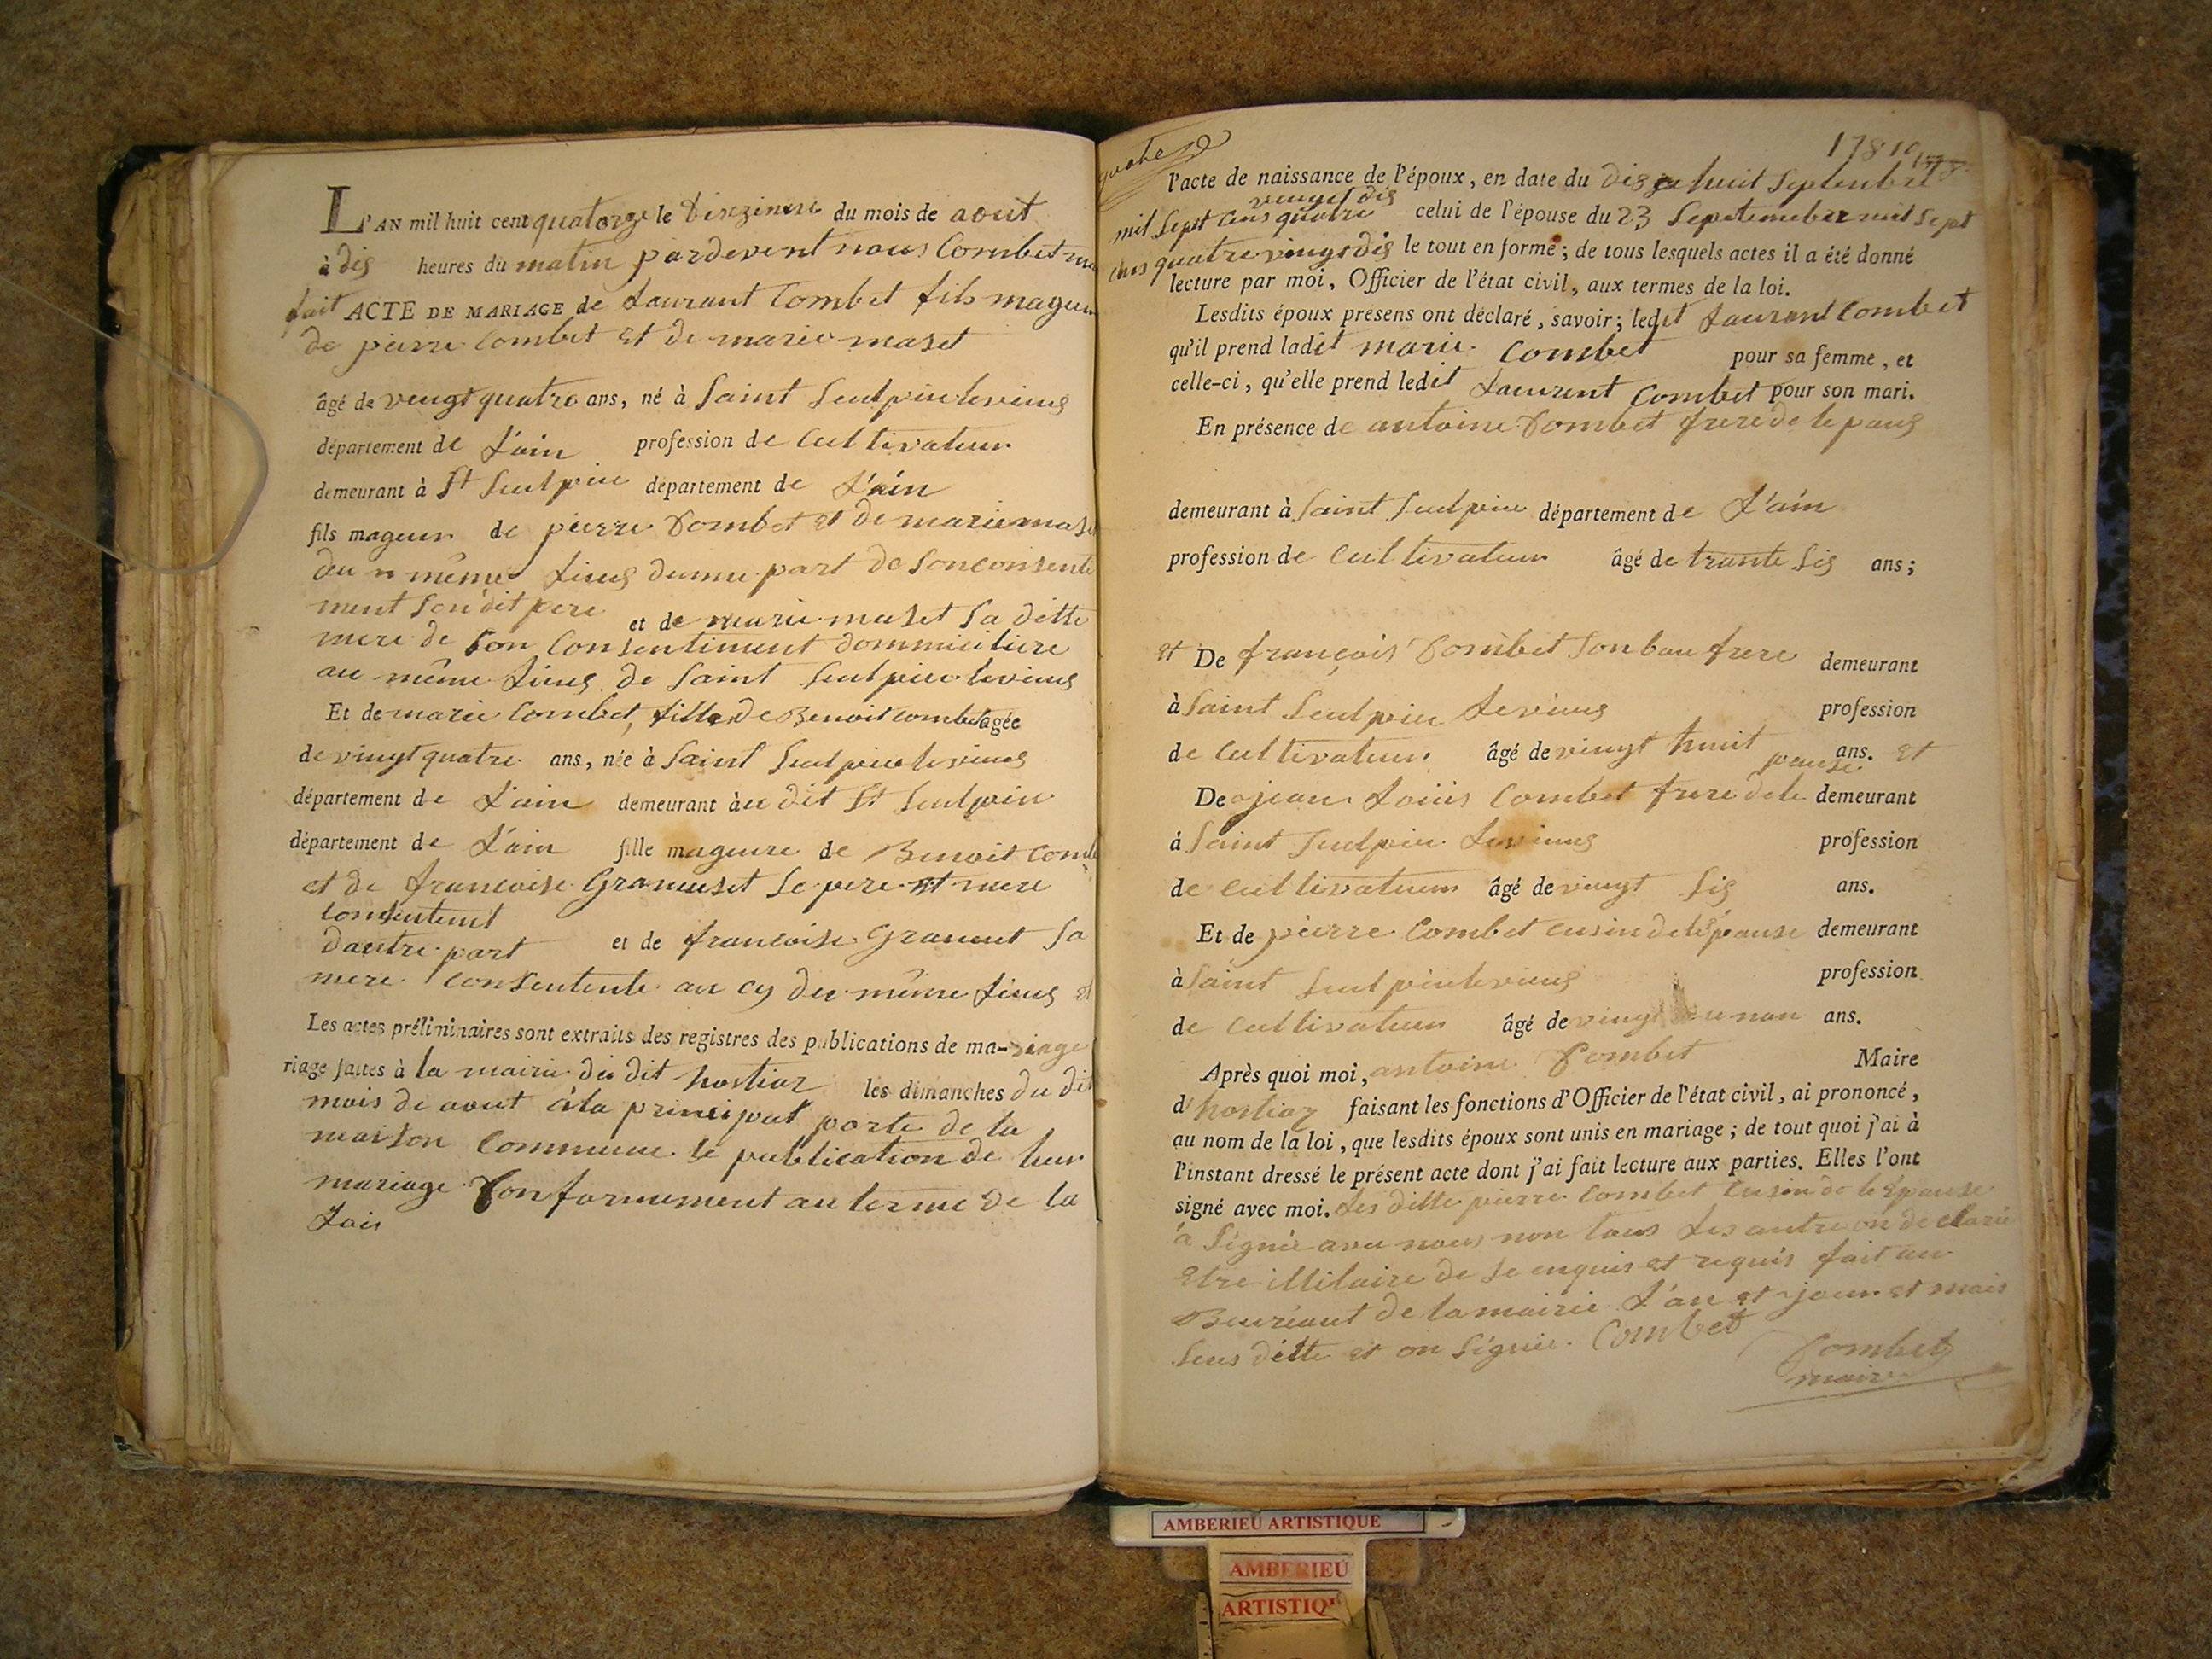 L'AN mil huit cent quatorze le du mois de aout
à dis heures du matin pardevent nous Combet
fait ACTE DE MARIAGE de Laurant Combet fils mageur
de pierre Combet et de marie maset
âgé de vengt quatre ans, né à Saint Seulpice levieus
département de L'ain profession de Cultivateur
demeurant à St Seulpice département de L'ain
fils mageur de pierre Combet et de marie maset
du même Lieus dunne part de Sonconsente
ment Son dit pere et de marie maset Sa ditte
mere de Son Consentiment dommiciliere
au même Lieus de Saint Seulpice levieus
Et de marie Combet, fille de Benoit combet agée
de vingt quatre ans, née à Saint Seulpice levieus
département de L'ain demeurant àu dit St Seulpice
département de L'ain fille mageure de Benoit Comb
et de francoise Gramuset Le pere et mere
Consentent
dautre part et de francoise Sa
mere Consentente au cy du même Lieus et
Les actes préliminaires sont extraits des registres des publications de ma-riage
riage faites à la mairie du dit hostiaz les dimanches du dit
mois de aout à la principal porte de la
maison Commune le publication de leur
mariage Conformement au terme de la
Lois
1781
l'acte de naissance de l'époux, en date du dis huit Septembre
vengt dis
mil Sept Cens quatre celui de l'épouse du 23 Sepetember mil Sept
Cens quatre vingt dis le tout en forme; de tous lesquels actes il a été donné
lecture par moi, Officier de l'état civil, aux termes de la loi.
Lesdits époux presens ont déclaré, savoir; ledit Laurant Combet
qu'il prend ladit marie Combet pour sa femme, et
celle-ci, qu'elle prend ledit Laurent Combet pour son mari.
En présence de antoine Combet frere de lepous
demeurant à Saint Seulpice département de L'ain
profession de Cultivateur âgé de trante Sis ans;
et De françois Combet Son bau frere demeurant
à Saint Seulpice Levieus profession
de Cultivateur âgé de vingt huit ans. et
pause
De jean Louis Combet frere de le demeurant
à Saint Seulpice Levieus profession
de Cultivateur âgé de vingt Sis ans.
Et de pierre Combet cusin de lépause demeurant
à Saint Seulpice levieus profession
de Cultivateur âgé de vingt ans.
Après quoi moi, antoine Combet Maire
d'hostiaz faisant les fonctions d'Officier de l'état civil, ai prononcé,
au nom de la loi, que lesdits époux sont unis en mariage; de tout quoi j'ai à
l'instant dressé le présent acte dont j'ai fait lecture aux parties. Elles l'ont
signé avec moi. Les ditte pierre Combet Cusin de le Epause
à Signée avec nous non tous Les autre on declaré
Etre illitaire de Se enquis et requis fait au
Bureaut de la mairie L'an et jour et mois
Seus ditte et on Signée. Combet
Combet
maire
AMBERIEU ARTISTIQUE
AMBERIEU
ARTISTIQ